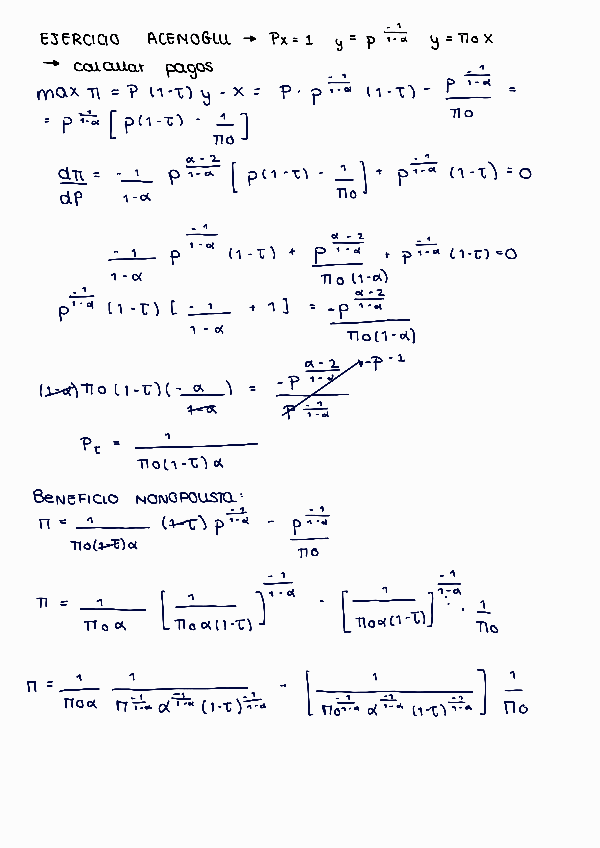 EJERCICIO ACENOGLU → Px = 1 y = p^{-1/(1-α)} y = πo x
→ calcular pagos
max π = P (1-τ) y - x = P · p^{-1/(1-α)} (1-τ) - p^{-1/(1-α)} / πo =
= p^{-1/(1-α)} [ p(1-τ) - 1/πo ]
dπ/dp = -1/(1-α) p^{(α-2)/(1-α)} [ p(1-τ) - 1/πo ] + p^{-1/(1-α)} (1-τ) = 0
-1/(1-α) p^{-1/(1-α)} (1-τ) + p^{(α-2)/(1-α)} / πo(1-α) + p^{-1/(1-α)} (1-τ) = 0
p^{-1/(1-α)} (1-τ) [ -1/(1-α) + 1 ] = -p^{(α-2)/(1-α)} / πo(1-α)
(1-α) πo (1-τ) (-α/(1-α)) = -p^{(α-2)/(1-α)} / p^{-1/(1-α)} → -p^{-1}
Pτ = 1 / πo(1-τ)α
BENEFICIO MONOPOLISTA:
π = 1/πo(1-τ)α (1-τ) p^{-1/(1-α)} - p^{-1/(1-α)} / πo
π = 1/πoα [ 1/πoα(1-τ) ]^{-1/(1-α)} - [ 1/πoα(1-τ) ]^{-1/(1-α)} · 1/πo
π = 1/πoα 1/π^{-1/(1-α)} α^{-1/(1-α)} (1-τ)^{-1/(1-α)} - [ 1/πo^{-1/(1-α)} α^{-1/(1-α)} (1-τ)^{-1/(1-α)} ] 1/πo